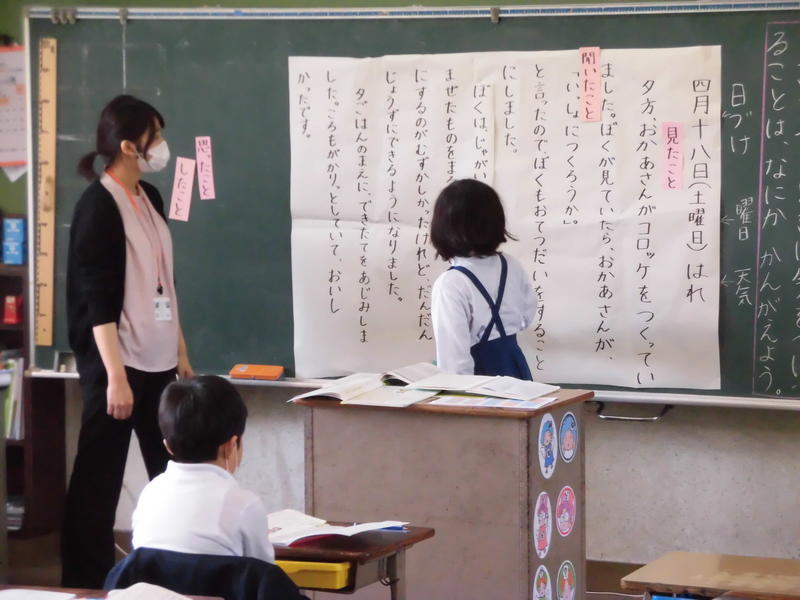 ることは、なにか かんがえよう。
日づけ
曜日
天気
四月十八日(土曜日) はれ
見たこと
夕方、おかあさんがコロッケをつくってい
ました。ぼくが見ていたら、おかあさんが、
聞いたこと
「いっしょにつくろうか。」
と言ったのでぼくもおてつだいをすること
にしました。
ぼくは、じゃがい
まぜたものをまる
にするのがむずかしかったけれど、だんだん
じょうずにできるようになりました。
夕ごはんのまえに、できたてをあじみしま
した。ころもがかりっとしていて、おいし
かったです。
思ったこと
したこと